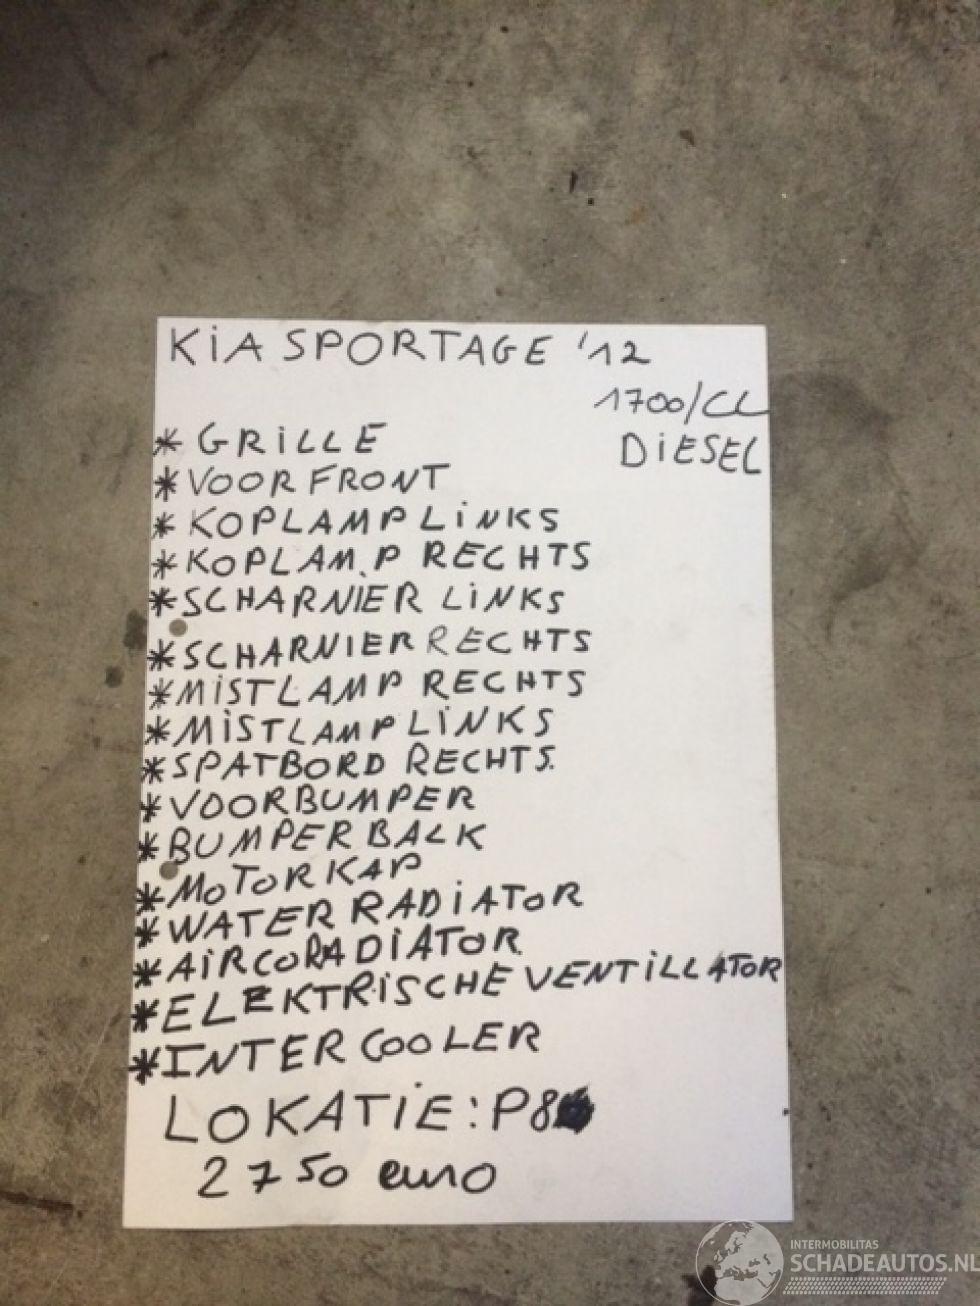 KIA SPORTAGE '12
1700/CL
DIESEL
* GRILLE
* VOORFRONT
* KOPLAMP LINKS
* KOPLAM.P RECHTS
* SCHARNIER LINKS
* SCHARNIER RECHTS
* MISTLAMP RECHTS
* MISTLAMP LINKS
* SPATBORD RECHTS.
* VOORBUMPER
* BUMPERBALK
* MOTORKAP
* WATERRADIATOR
* AIRCORADIATOR
* ELEKTRISCHE VENTILLATOR
* INTERCOOLER
LOKATIE: P8
2750 euro
INTERMOBILITAS
SCHADEAUTOS.NL